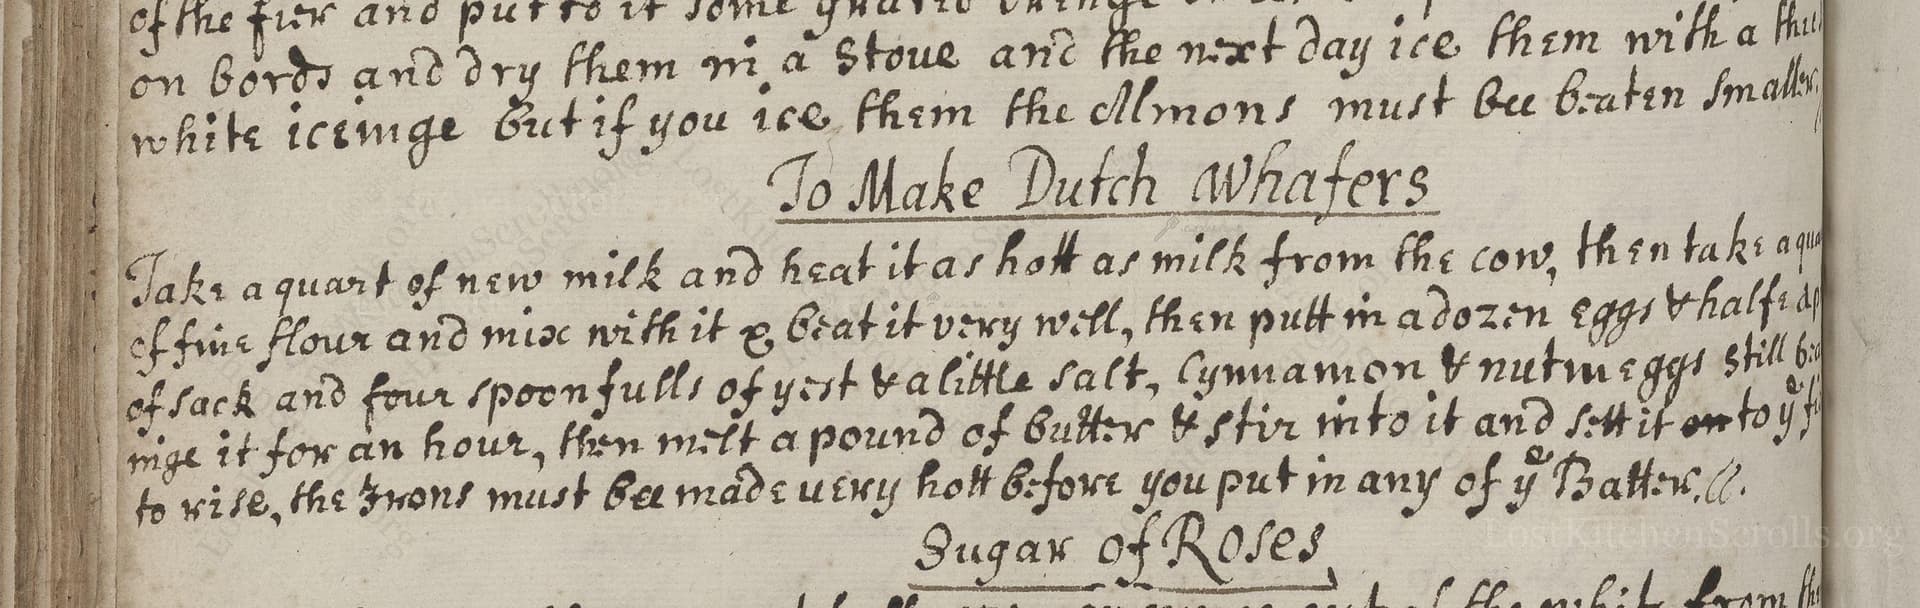 of the fier and put to it some
on bords and dry them in a stove and the next day ice them with a
white iceinge but if you ice them the Almons must bee beaten smaller
To Make Dutch Whafers
Take a quart of new milk and heat it as hott as milk from the cow, then take a
of fine flour and mix with it & beat it very well, then putt in a dozen eggs & halfe a
of sack and four spoonfulls of yest & a little salt, Cynnamon & nutmeggs still
inge it for an hour, then melt a pound of butter & stir into it and sett it on to ye
to rise, the Irons must bee made very hott before you put in any of ye Batter.
Sugar of Roses
LostKitchenScrolls.org